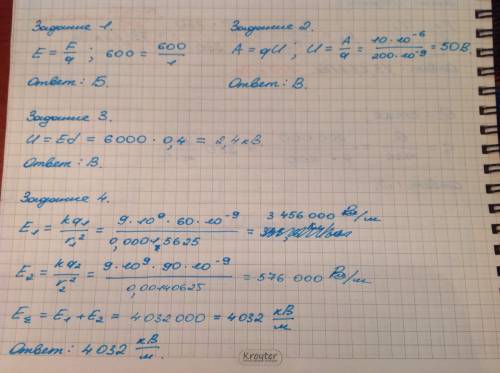 Задание 1.
E = F/q ; 600 = 600/1
Ответ: Б.
Задание 2.
A = qU ; U = A/q = 10·10⁻⁶/200·10⁻⁹ = 50В.
Ответ: В.
Задание 3.
U = Ed = 6000 · 0,4 = 2,4кВ.
Ответ: В.
Задание 4.
E₁ = kq₁/r₁² = 9·10⁹·60·10⁻⁹/0,00015625 = 3 456 000 В/м
E₂ = kq₂/r₂² = 9·10⁹·90·10⁻⁹/0,00140625 = 576 000 В/м
E_Σ = E₁ + E₂ = 4032000 = 4032 кВ/м
Ответ: 4032 кВ/м.
Krayter